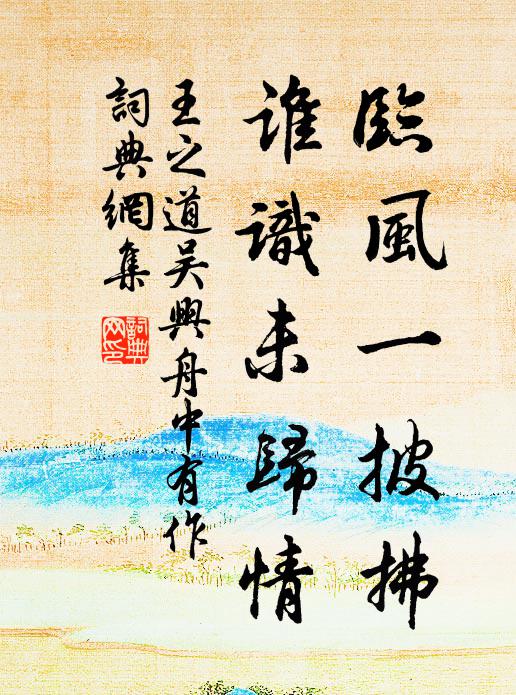 臨風一披拂
誰識未歸情
王之道吴興舟中有作
詞典網集
詞典網印